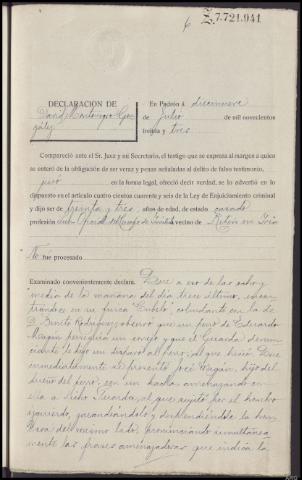 6 Z.7.721.941
DECLARACION DE
David Montenegro Gon
zález
En Padrón á diecinueve
de Julio de mil novecientos
treinta y tres
Compareció ante el Sr. Juez y mi Secretario, el testigo que se expresa al margen a quien
se enteró de la obligación de ser veraz y penas señaladas al delito de falso testimonio,
juró en la forma legal, ofreció decir verdad, se lo advertió en lo
dispuesto en el artículo cuatro cientos cuarenta y seis de la Ley de Enjuiciamiento criminal
y dijo ser de treinta y tres años de edad, de estado casado
profesión Oficial del Cuerpo de vecino de
No fue procesado
Examinado convenientemente declara. Dice a eso de las ocho y
media de la mañana del día trece último, encon
trándose en su finca colindante con la de
D. Benito Rodríguez, observó que un perro de Eduardo
Magán perseguía un conejo y que el Guarda denun
ciante le hizo un disparo al perro, al que hirió. Que
inmediatamente se presentó José Magán, hijo del
dueño del perro, con un hacha amenazando con
ella a dicho Guarda, al que sujetó por el hombro
izquierdo, zarandeándole y desprendiéndole la ban
del mismo lado, pronunciando simultánea
mente las frases amenazadoras que indica la